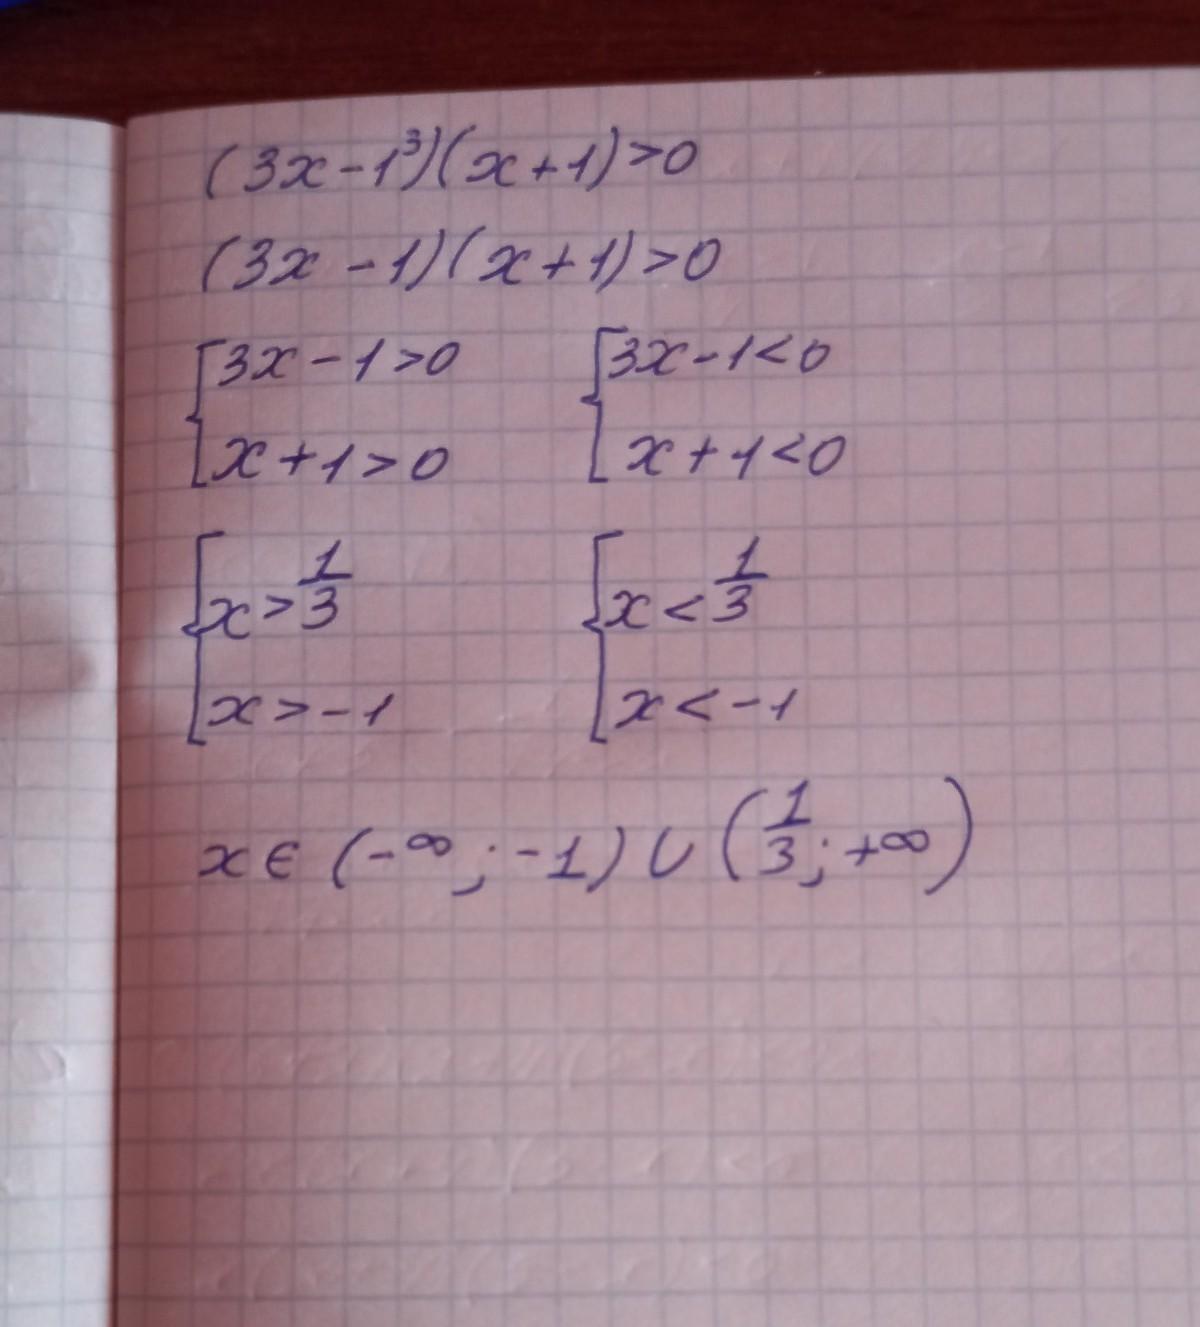 (3x-1³)(x+1)>0
(3x-1)(x+1)>0
{3x-1>0 {3x-1<0
x+1>0 x+1<0
{x>1/3 {x<1/3
x>-1 x<-1
x∈(-∞;-1)∪(1/3;+∞)